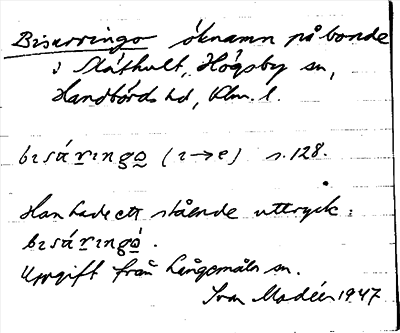 Bisarringo öknamn på bonde
i Slåthult, Högsby sn,
Handbörds hd, Klm. l.
bɪsáringo (ɪ→e) s. 128.
Han hade ett stående uttryck:
bɪsáringó.
Uppgift från Långemåla sn.
Ivar Modéer 1947